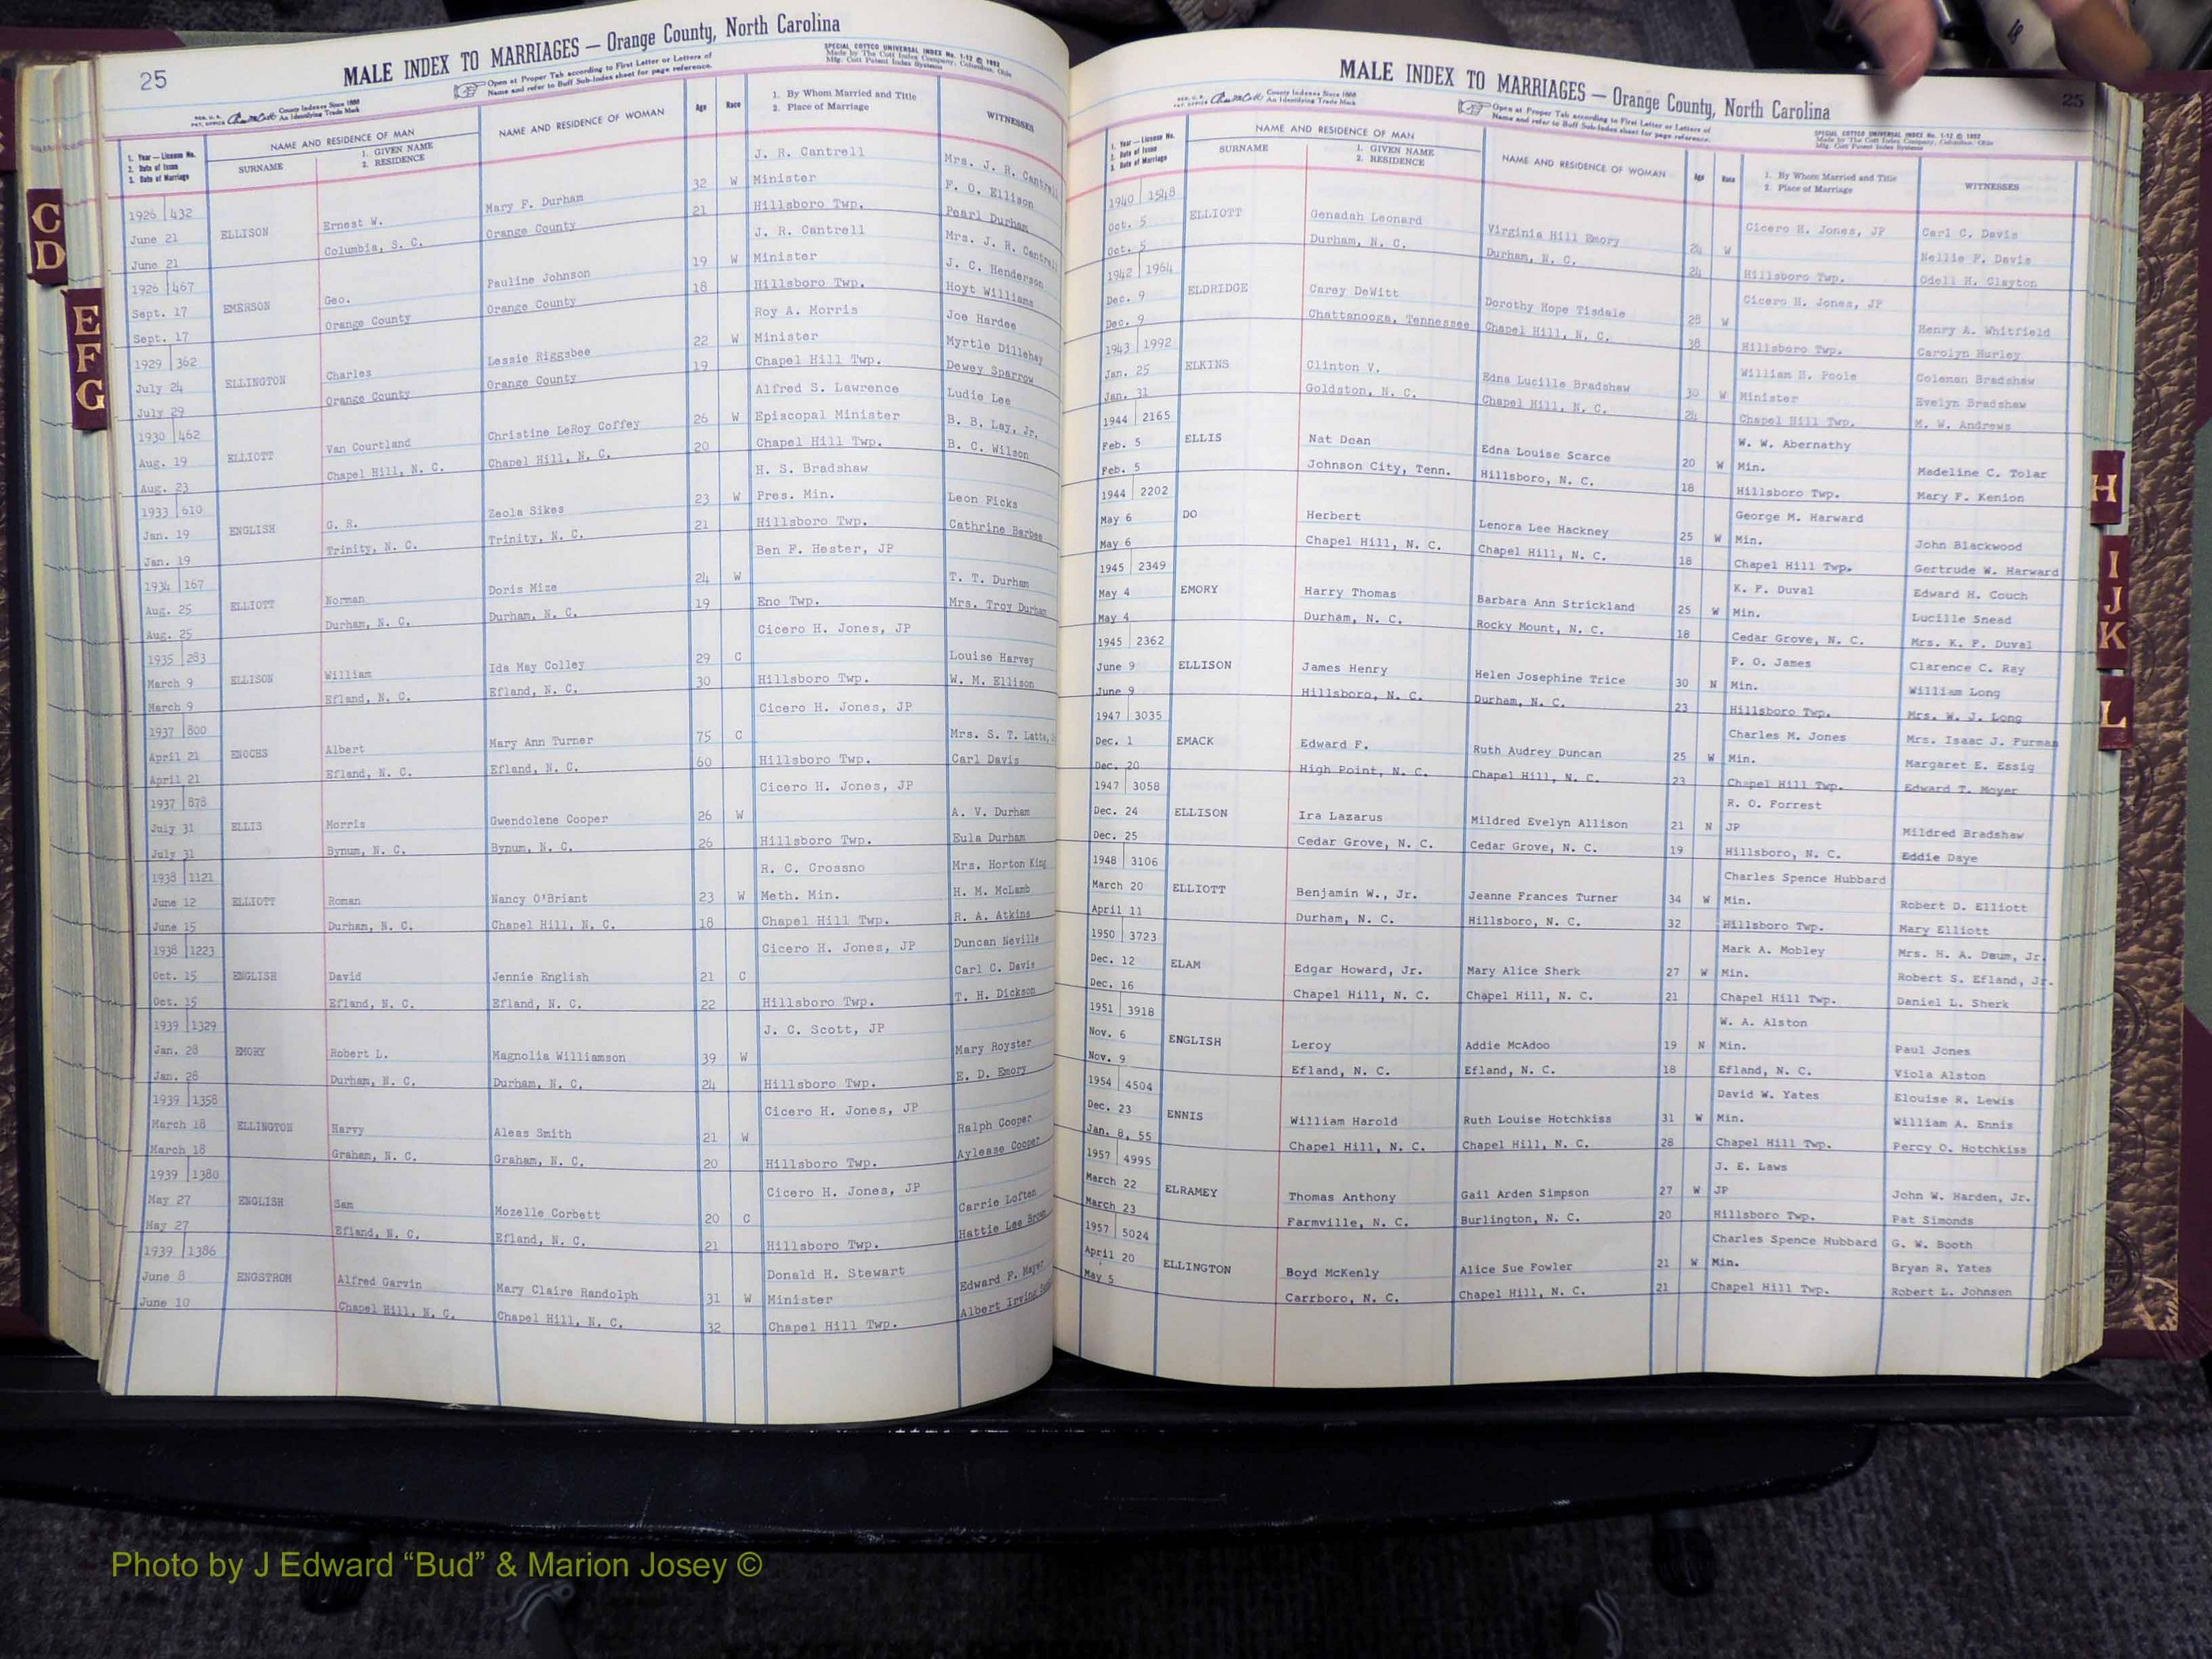 25
MALE INDEX TO MARRIAGES — Orange County, North Carolina
SPECIAL COTTCO UNIVERSAL INDEX No. 1-12 © 1952
Made by The Cott Index Company, Columbus, Ohio
Mfg. Cott Patent Index Systems
County Indexes Since 1888
An Identifying Trade Mark
Open at Proper Tab according to First Letter or Letters of
Name and refer to Buff Sub-Index sheet for page reference.
1. Year — License No.
2. Date of Issue
3. Date of Marriage
NAME AND RESIDENCE OF MAN
SURNAME
1. GIVEN NAME
2. RESIDENCE
NAME AND RESIDENCE OF WOMAN
Age
Race
1. By Whom Married and Title
2. Place of Marriage
WITNESSES
1926 432 J. R. Cantrell Mrs. J. R. Cantrell
June 21 ELLISON Ernest W. Mary F. Durham 32 W Minister F. O. Ellison
June 21 Columbia, S. C. Orange County 21 Hillsboro Twp. Pearl Durham
1926 467 J. R. Cantrell Mrs. J. R. Cantrell
Sept. 17 EMERSON Geo. Pauline Johnson 19 W Minister J. C. Henderson
Sept. 17 Orange County Orange County 18 Hillsboro Twp. Hoyt Williams
1929 362 Roy A. Morris Joe Hardee
July 24 ELLINGTON Charles Lessie Riggsbee 22 W Minister Myrtle Dillehay
July 29 Orange County Orange County 19 Chapel Hill Twp. Dewey Sparrow
1930 462 Alfred S. Lawrence Ludie Lee
Aug. 19 ELLIOTT Van Courtland Christine LeRoy Coffey 26 W Episcopal Minister B. B. Lay, Jr.
Aug. 23 Chapel Hill, N. C. Chapel Hill, N. C. 20 Chapel Hill Twp. B. C. Wilson
1933 610 H. S. Bradshaw
Jan. 19 ENGLISH G. R. Zeola Sikes 23 W Pres. Min. Leon Ficks
Jan. 19 Trinity, N. C. Trinity, N. C. 21 Hillsboro Twp. Cathrine Barbee
1934 167 Ben F. Hester, JP
Aug. 25 ELLIOTT Norman Doris Mize 24 W T. T. Durham
Aug. 25 Durham, N. C. Durham, N. C. 19 Eno Twp. Mrs. Troy Durham
1935 283 Cicero H. Jones, JP
March 9 ELLISON William Ida May Colley 29 C Louise Harvey
March 9 Efland, N. C. Efland, N. C. 30 Hillsboro Twp. W. M. Ellison
1937 800 Cicero H. Jones, JP
April 21 ENOCHS Albert Mary Ann Turner 75 C Mrs. S. T. Latta,
April 21 Efland, N. C. Efland, N. C. 60 Hillsboro Twp. Carl Davis
1937 878 Cicero H. Jones, JP
July 31 ELLIS Morris Gwendolene Cooper 26 W A. V. Durham
July 31 Bynum, N. C. Bynum, N. C. 26 Hillsboro Twp. Eula Durham
1938 1121 R. C. Crossno Mrs. Horton King
June 12 ELLIOTT Roman Nancy O'Briant 23 W Meth. Min. H. M. McLamb
June 15 Durham, N. C. Chapel Hill, N. C. 18 Chapel Hill Twp. R. A. Atkins
1938 1223 Cicero H. Jones, JP Duncan Neville
Oct. 15 ENGLISH David Jennie English 21 C Carl C. Davis
Oct. 15 Efland, N. C. Efland, N. C. 22 Hillsboro Twp. T. H. Dickson
1939 1329 J. C. Scott, JP
Jan. 28 EMORY Robert L. Magnolia Williamson 39 W Mary Royster
Jan. 28 Durham, N. C. Durham, N. C. 24 Hillsboro Twp. E. D. Emory
1939 1358 Cicero H. Jones, JP
March 18 ELLINGTON Harvy Aleas Smith 21 W Ralph Cooper
March 18 Graham, N. C. Graham, N. C. 20 Hillsboro Twp. Aylease Cooper
1939 1380 Cicero H. Jones, JP
May 27 ENGLISH Sam Mozelle Corbett 20 C Carrie Loften
May 27 Efland, N. C. Efland, N. C. 21 Hillsboro Twp. Hattie Lee Brown
1939 1386 Donald H. Stewart
June 8 ENGSTROM Alfred Garvin Mary Claire Randolph 31 W Minister Edward F. Mayer
June 10 Chapel Hill, N. C. Chapel Hill, N. C. 32 Chapel Hill Twp. Albert Irving
25
MALE INDEX TO MARRIAGES — Orange County, North Carolina
SPECIAL COTTCO UNIVERSAL INDEX No. 1-12 © 1952
Made by The Cott Index Company, Columbus, Ohio
Mfg. Cott Patent Index Systems
County Indexes Since 1888
An Identifying Trade Mark
Open at Proper Tab according to First Letter or Letters of
Name and refer to Buff Sub-Index sheet for page reference.
1. Year — License No.
2. Date of Issue
3. Date of Marriage
NAME AND RESIDENCE OF MAN
SURNAME
1. GIVEN NAME
2. RESIDENCE
NAME AND RESIDENCE OF WOMAN
Age
Race
1. By Whom Married and Title
2. Place of Marriage
WITNESSES
1940 1548 Cicero H. Jones, JP Carl C. Davis
Oct. 5 ELLIOTT Genadah Leonard Virginia Hill Emory 24 W Nellie F. Davis
Oct. 5 Durham, N. C. Durham, N. C. 24 Hillsboro Twp. Odell H. Clayton
1942 1964 Cicero H. Jones, JP
Dec. 9 ELDRIDGE Carey DeWitt Dorothy Hope Tisdale 28 W Henry A. Whitfield
Dec. 9 Chattanooga, Tennessee Chapel Hill, N. C. 38 Hillsboro Twp. Carolyn Hurley
1943 1992 William H. Poole Coleman Bradshaw
Jan. 25 ELKINS Clinton V. Edna Lucille Bradshaw 30 W Minister Evelyn Bradshaw
Jan. 31 Goldston, N. C. Chapel Hill, N. C. 24 Chapel Hill Twp. M. W. Andrews
1944 2165 W. W. Abernathy
Feb. 5 ELLIS Nat Dean Edna Louise Scarce 20 W Min. Madeline C. Tolar
Feb. 5 Johnson City, Tenn. Hillsboro, N. C. 18 Hillsboro Twp. Mary F. Kenion
1944 2202 George M. Harward
May 6 DO Herbert Lenora Lee Hackney 25 W Min. John Blackwood
May 6 Chapel Hill, N. C. Chapel Hill, N. C. 18 Chapel Hill Twp. Gertrude W. Harward
1945 2349 K. F. Duval Edward H. Couch
May 4 EMORY Harry Thomas Barbara Ann Strickland 25 W Min. Lucille Snead
May 4 Durham, N. C. Rocky Mount, N. C. 18 Cedar Grove, N. C. Mrs. K. F. Duval
1945 2362 P. O. James Clarence C. Ray
June 9 ELLISON James Henry Helen Josephine Trice 30 N Min. William Long
June 9 Hillsboro, N. C. Durham, N. C. 23 Hillsboro Twp. Mrs. W. J. Long
1947 3035 Charles M. Jones Mrs. Isaac J. Furman
Dec. 1 EMACK Edward F. Ruth Audrey Duncan 25 W Min. Margaret E. Essig
Dec. 20 High Point, N. C. Chapel Hill, N. C. 23 Chapel Hill Twp. Edward T. Moyer
1947 3058 R. O. Forrest
Dec. 24 ELLISON Ira Lazarus Mildred Evelyn Allison 21 N JP Mildred Bradshaw
Dec. 25 Cedar Grove, N. C. Cedar Grove, N. C. 19 Hillsboro, N. C. Eddie Daye
1948 3106 Charles Spence Hubbard
March 20 ELLIOTT Benjamin W., Jr. Jeanne Frances Turner 34 W Min. Robert D. Elliott
April 11 Durham, N. C. Hillsboro, N. C. 32 Hillsboro Twp. Mary Elliott
1950 3723 Mark A. Mobley Mrs. H. A. Daum, Jr.
Dec. 12 ELAM Edgar Howard, Jr. Mary Alice Sherk 27 W Min. Robert S. Efland, Jr.
Dec. 16 Chapel Hill, N. C. Chapel Hill, N. C. 21 Chapel Hill Twp. Daniel L. Sherk
1951 3918 W. A. Alston
Nov. 6 ENGLISH Leroy Addie McAdoo 19 N Min. Paul Jones
Nov. 9 Efland, N. C. Efland, N. C. 18 Efland, N. C. Viola Alston
1954 4504 David W. Yates Elouise R. Lewis
Dec. 23 ENNIS William Harold Ruth Louise Hotchkiss 31 W Min. William A. Ennis
Jan. 8, 55 Chapel Hill, N. C. Chapel Hill, N. C. 28 Chapel Hill Twp. Percy O. Hotchkiss
1957 4995 J. E. Laws
March 22 ELRAMEY Thomas Anthony Gail Arden Simpson 27 W JP John W. Harden, Jr.
March 23 Farmville, N. C. Burlington, N. C. 20 Hillsboro Twp. Pat Simonds
1957 5024 Charles Spence Hubbard G. W. Booth
April 20 ELLINGTON Boyd McKenly Alice Sue Fowler 21 W Min. Bryan R. Yates
May 5 Carrboro, N. C. Chapel Hill, N. C. 21 Chapel Hill Twp. Robert L. Johnson
C
D
E
F
G
H
I
J
K
L
Photo by J Edward “Bud” & Marion Josey ©